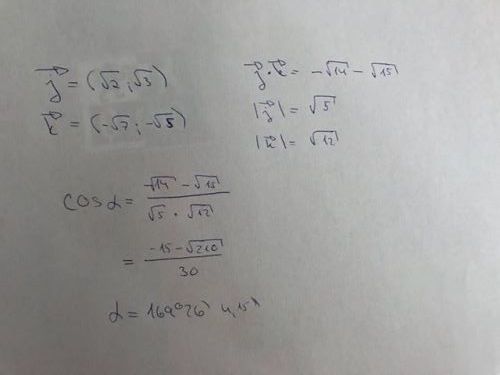 j⃗ = (√2 ; √3)
k⃗ = (-√7 ; -√5)
j⃗ · k⃗ = -√14 - √15
|j⃗| = √5
|k⃗| = √12
cos α = (-√14 - √15) / (√5 · √12)
= (-15 - √210) / 30
α = 169°26' 4,15"